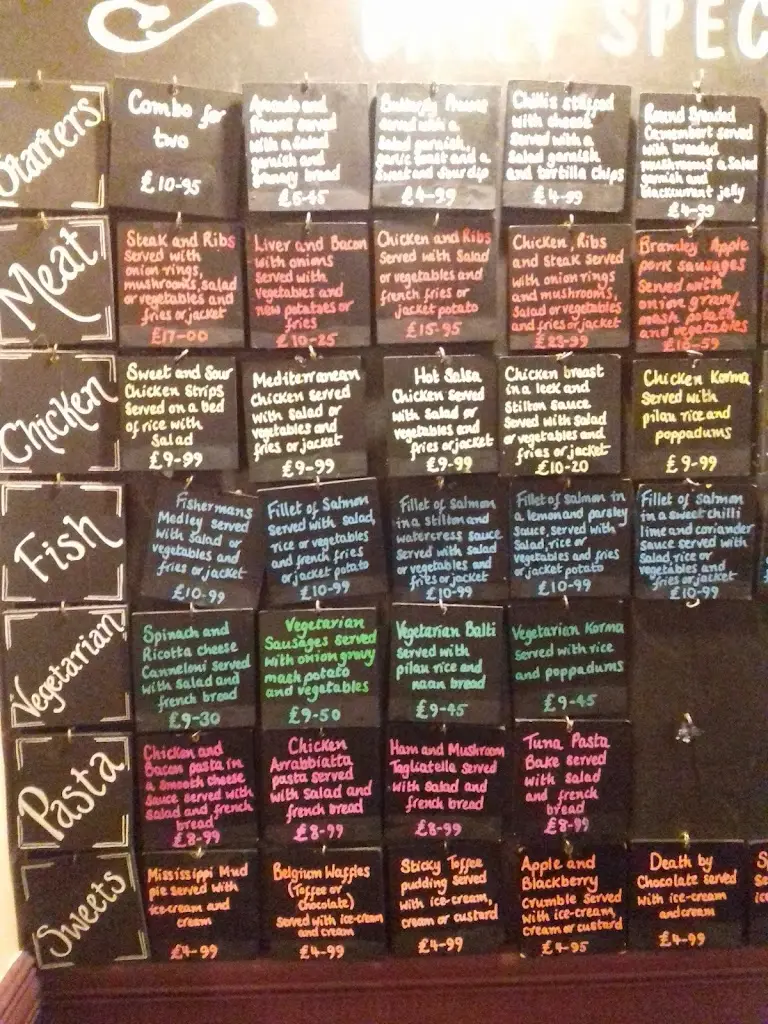 SPEC
Starters
Combo for
two
£10-95
Avocado and
Prawns served
with a salad
garnish and
Granary bread
£5-45
Butterfly Prawns
served with a
salad garnish,
garlic toast and a
Sweet and Sour dip
£4-99
Chillis stuffed
with cheese
Served with a
Salad garnish
and tortilla chips
£4-99
Round Breaded
Camembert served
with breaded
mushrooms a salad
garnish and
blackcurrant jelly
£4-99
Meat
Steak and Ribs
Served with
onion rings,
mushrooms, salad
or vegetables and
fries or jacket
£17-00
Liver and Bacon
with onions
Served with
vegetables and
new potatoes or
fries
£10-25
Chicken and Ribs
Served with Salad
or vegetables and
french fries or
jacket potato
£15-95
Chicken, Ribs
and steak Served
with onion rings
and mushrooms,
Salad or vegetables
and fries or jacket
£23-99
Bramley Apple
pork sausages
Served with
onion gravy,
mash potato
and vegetables
Chicken
Sweet and Sour
Chicken Strips
Served on a bed
of rice with
Salad
£9-99
Mediterranean
Chicken served
with Salad or
vegetables and
fries or jacket
£9-99
Hot Salsa
Chicken Served
with Salad or
vegetables and
fries or jacket
£9-99
Chicken breast
in a leek and
Stilton Sauce
Served with Salad
or vegetables and
fries or jacket
£10-20
Chicken Korma
Served with
pilau rice and
poppadums
£9-99
Fish
Fishermans
Medley served
with salad or
vegetables and
fries or jacket
£10-99
Fillet of Salmon
Served with salad,
rice or vegetables
and french fries
or jacket potato
£10-99
Fillet of Salmon
in a Stilton and
watercress sauce
Served with salad
or vegetables and
fries or jacket
£10-99
Fillet of Salmon in
a lemon and parsley
Sauce, Served with
Salad, rice or
vegetables and fries
or jacket potato
£10-99
Fillet of Salmon
in a sweet chilli
lime and coriander
Sauce Served with
Salad, rice or
vegetables and
fries or jacket
£10-99
Vegetarian
Spinach and
Ricotta cheese
Canneloni Served
with Salad and
french bread
£9-30
Vegetarian
Sausages served
with onion gravy
mash potato
and vegetables
£9-50
Vegetarian Balti
served with
pilau rice and
naan bread
£9-45
Vegetarian Korma
served with rice
and poppadums
£9-45
Pasta
Chicken and
Bacon pasta in
a Smooth cheese
Sauce served with
Salad and french
bread
£8-99
Chicken
Arrabbiatta
pasta served
with Salad and
french bread
£8-99
Ham and Mushroom
Tagliatelle Served
with Salad and
french bread
£8-99
Tuna Pasta
Bake served
with Salad
and french
bread
£8-99
Sweets
Mississippi Mud
pie served with
ice-cream and
cream
£4-99
Belgium Waffles
(Toffee or
chocolate)
Served with ice-cream
and cream
£4-99
Sticky Toffee
pudding served
with ice-cream,
cream or custard
£4-99
Apple and
Blackberry
Crumble Served
with ice-cream,
cream or custard
£4-95
Death by
Chocolate served
with ice-cream
and cream
£4-99